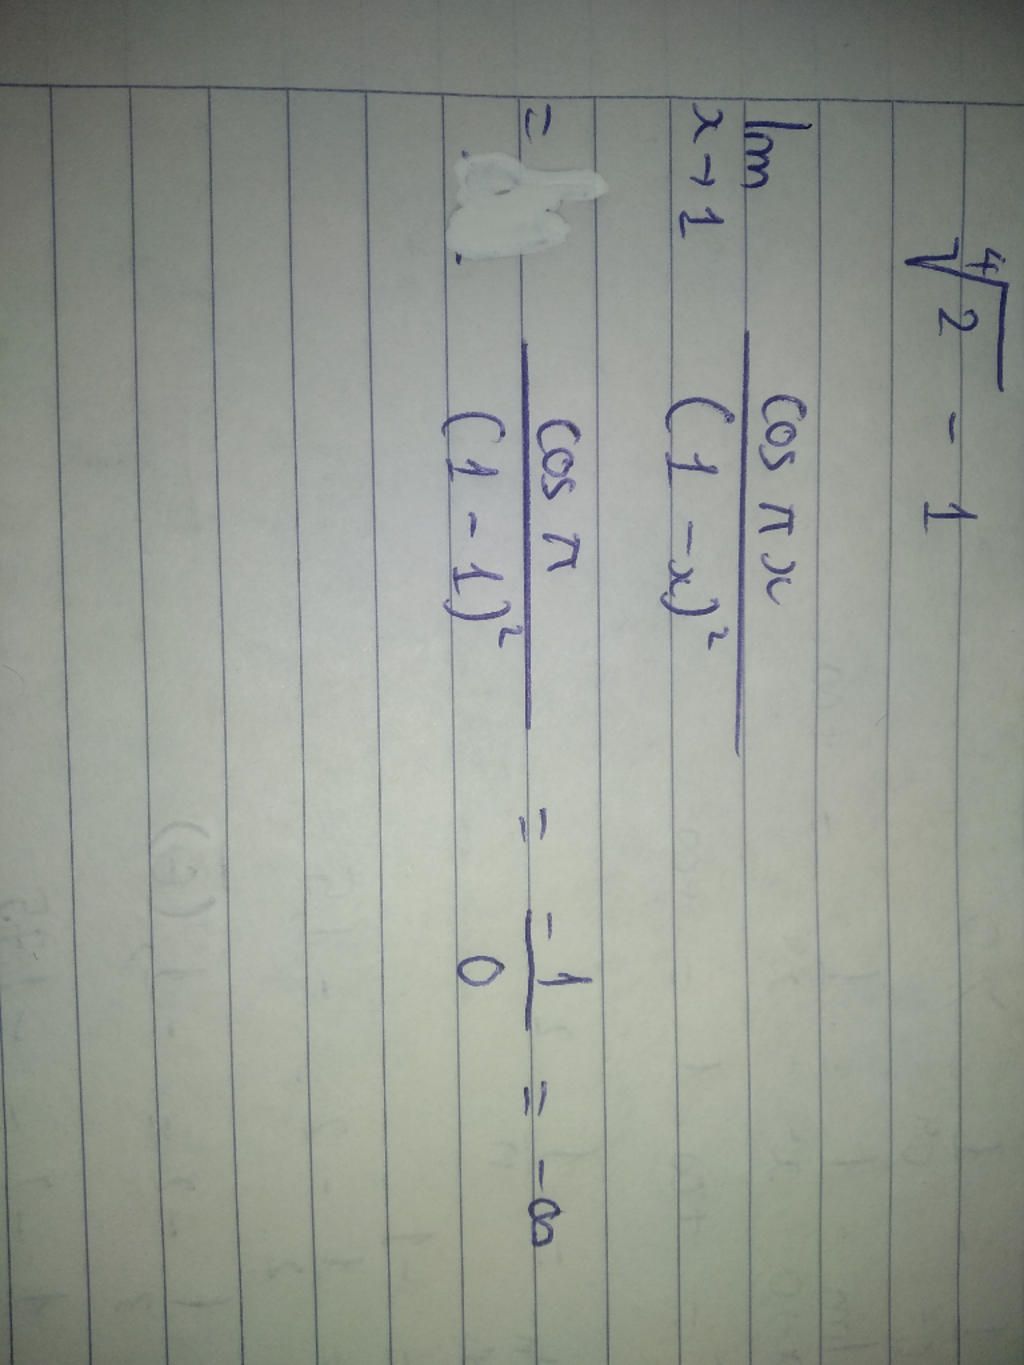 ⁴√2 - 1
lim x→1 cos πx / (1 - x)²
= cos π / (1 - 1)² = -1 / 0 = -∞